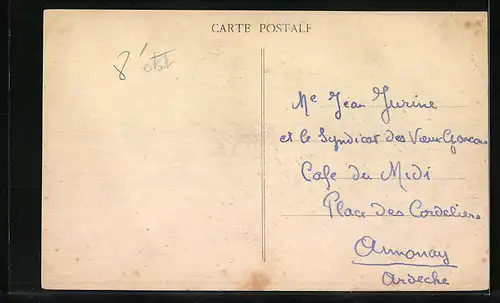 CARTE POSTALE
Me Jean Jurine
et le Syndicat des Vieux Garcons
Café du Midi
Place des Cordeliers
Annonay
Ardèche